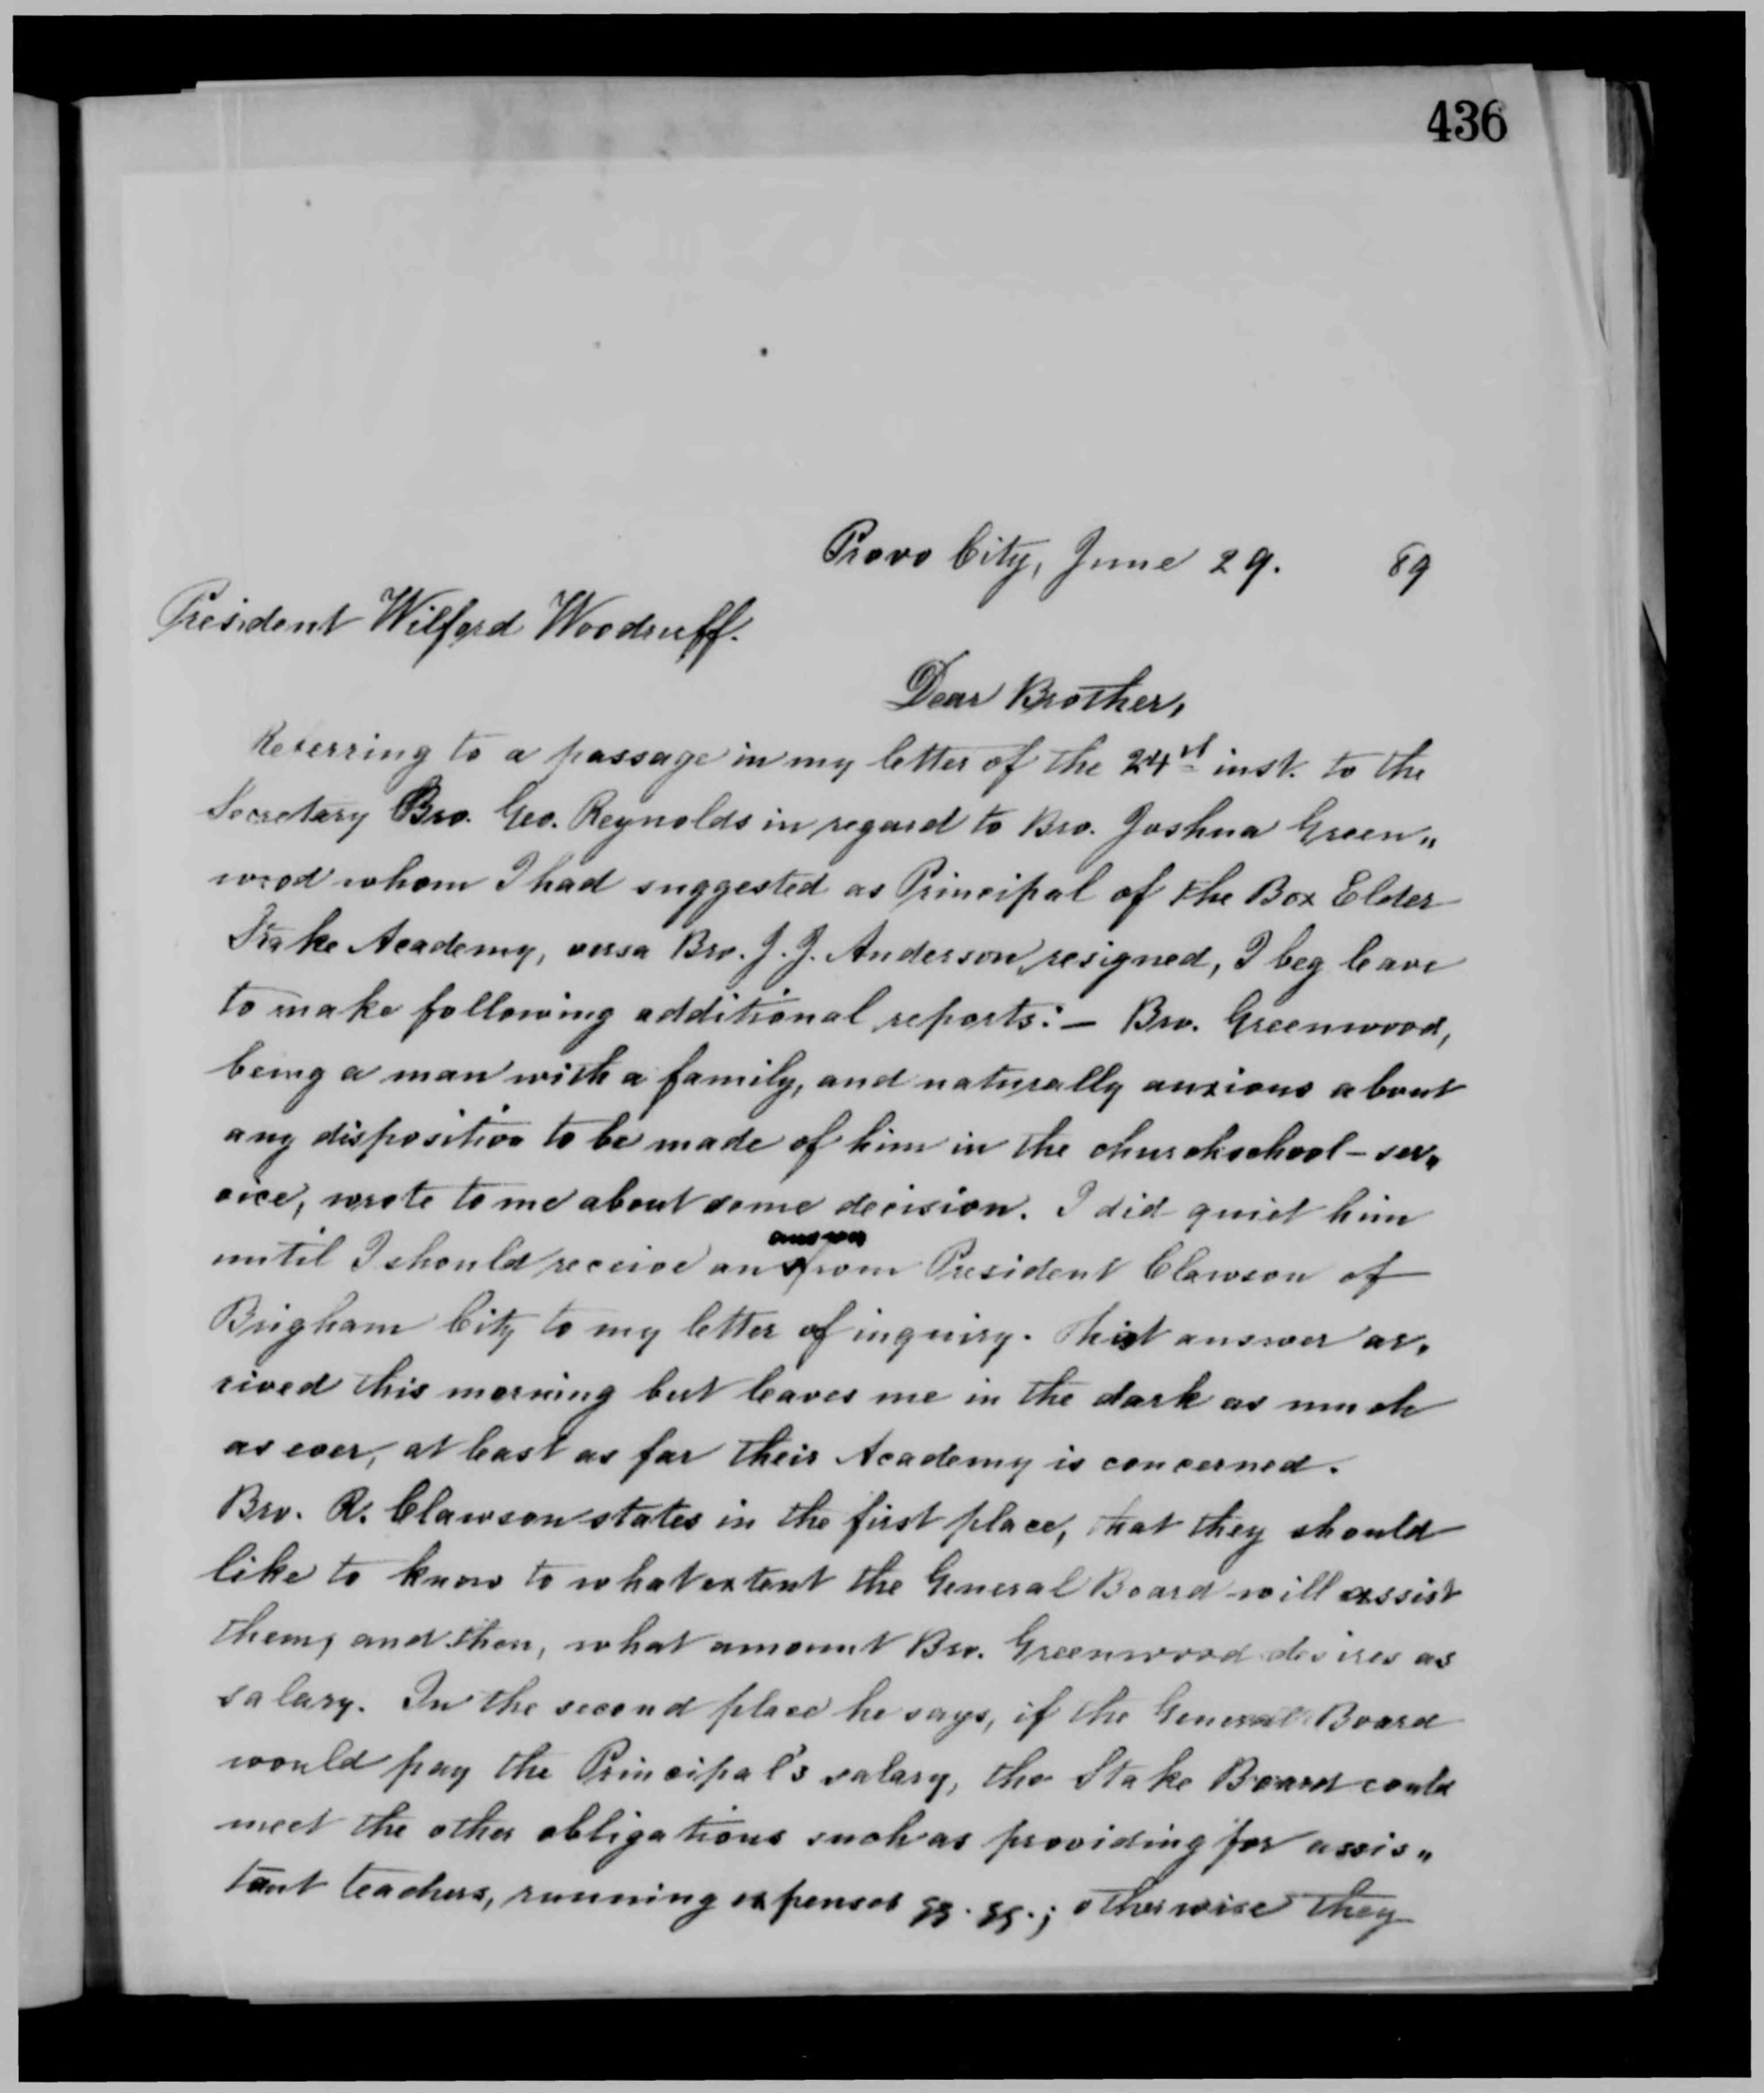 436
Provo City, June 29. 89
President Wilford Woodruff.
Dear Brother,
Referring to a passage in my letter of the 24st inst. to the
Secretary Bro. Geo. Reynolds in regard to Bro. Joshua Green„
wood whom I had suggested as Principal of the Box Elder
Stake Academy, versa Bro. J. J. Anderson resigned, I beg leave
to make following additional reports:— Bro. Greenwood,
being a man with a family, and naturally anxious about
any disposition to be made of him in the churchschool-ser„
vice, wrote to me about some decision. I did quiet him
answer
until I should receive an from President Clawson of
Brigham City to my letter of inquiry. This answer ar„
rived this morning but leaves me in the dark as much
as ever, at least as far their Academy is concerned.
Bro. R. Clawson states in the first place, that they should
like to know to what extent the General Board will assist
them, and then, what amount Bro. Greenwood desires as
salary. In the second place he says, if the General Board
would pay the Principal's salary, the Stake Board could
meet the other obligations such as providing for assis„
tant teachers, running expenses ; otherwise they